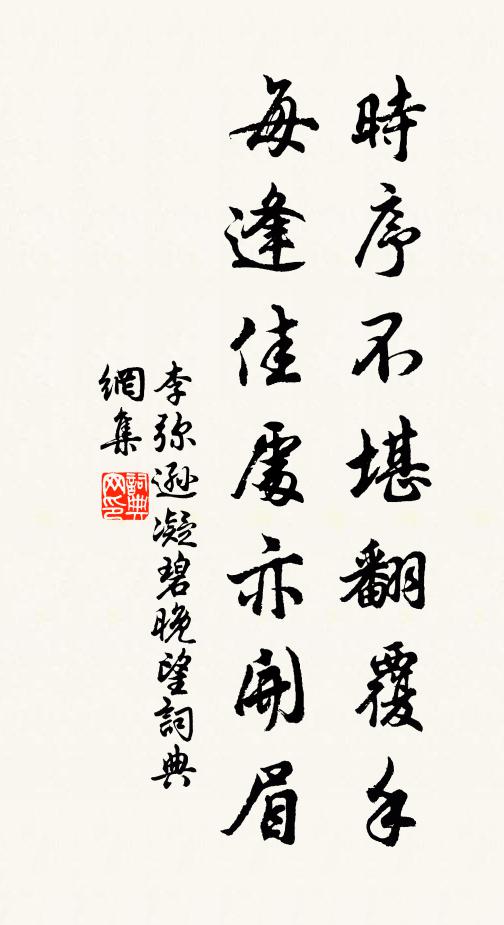 時序不堪翻覆手
每逢佳處亦開眉
李弥遜凝碧晚望詞典
網集
詞典
网印